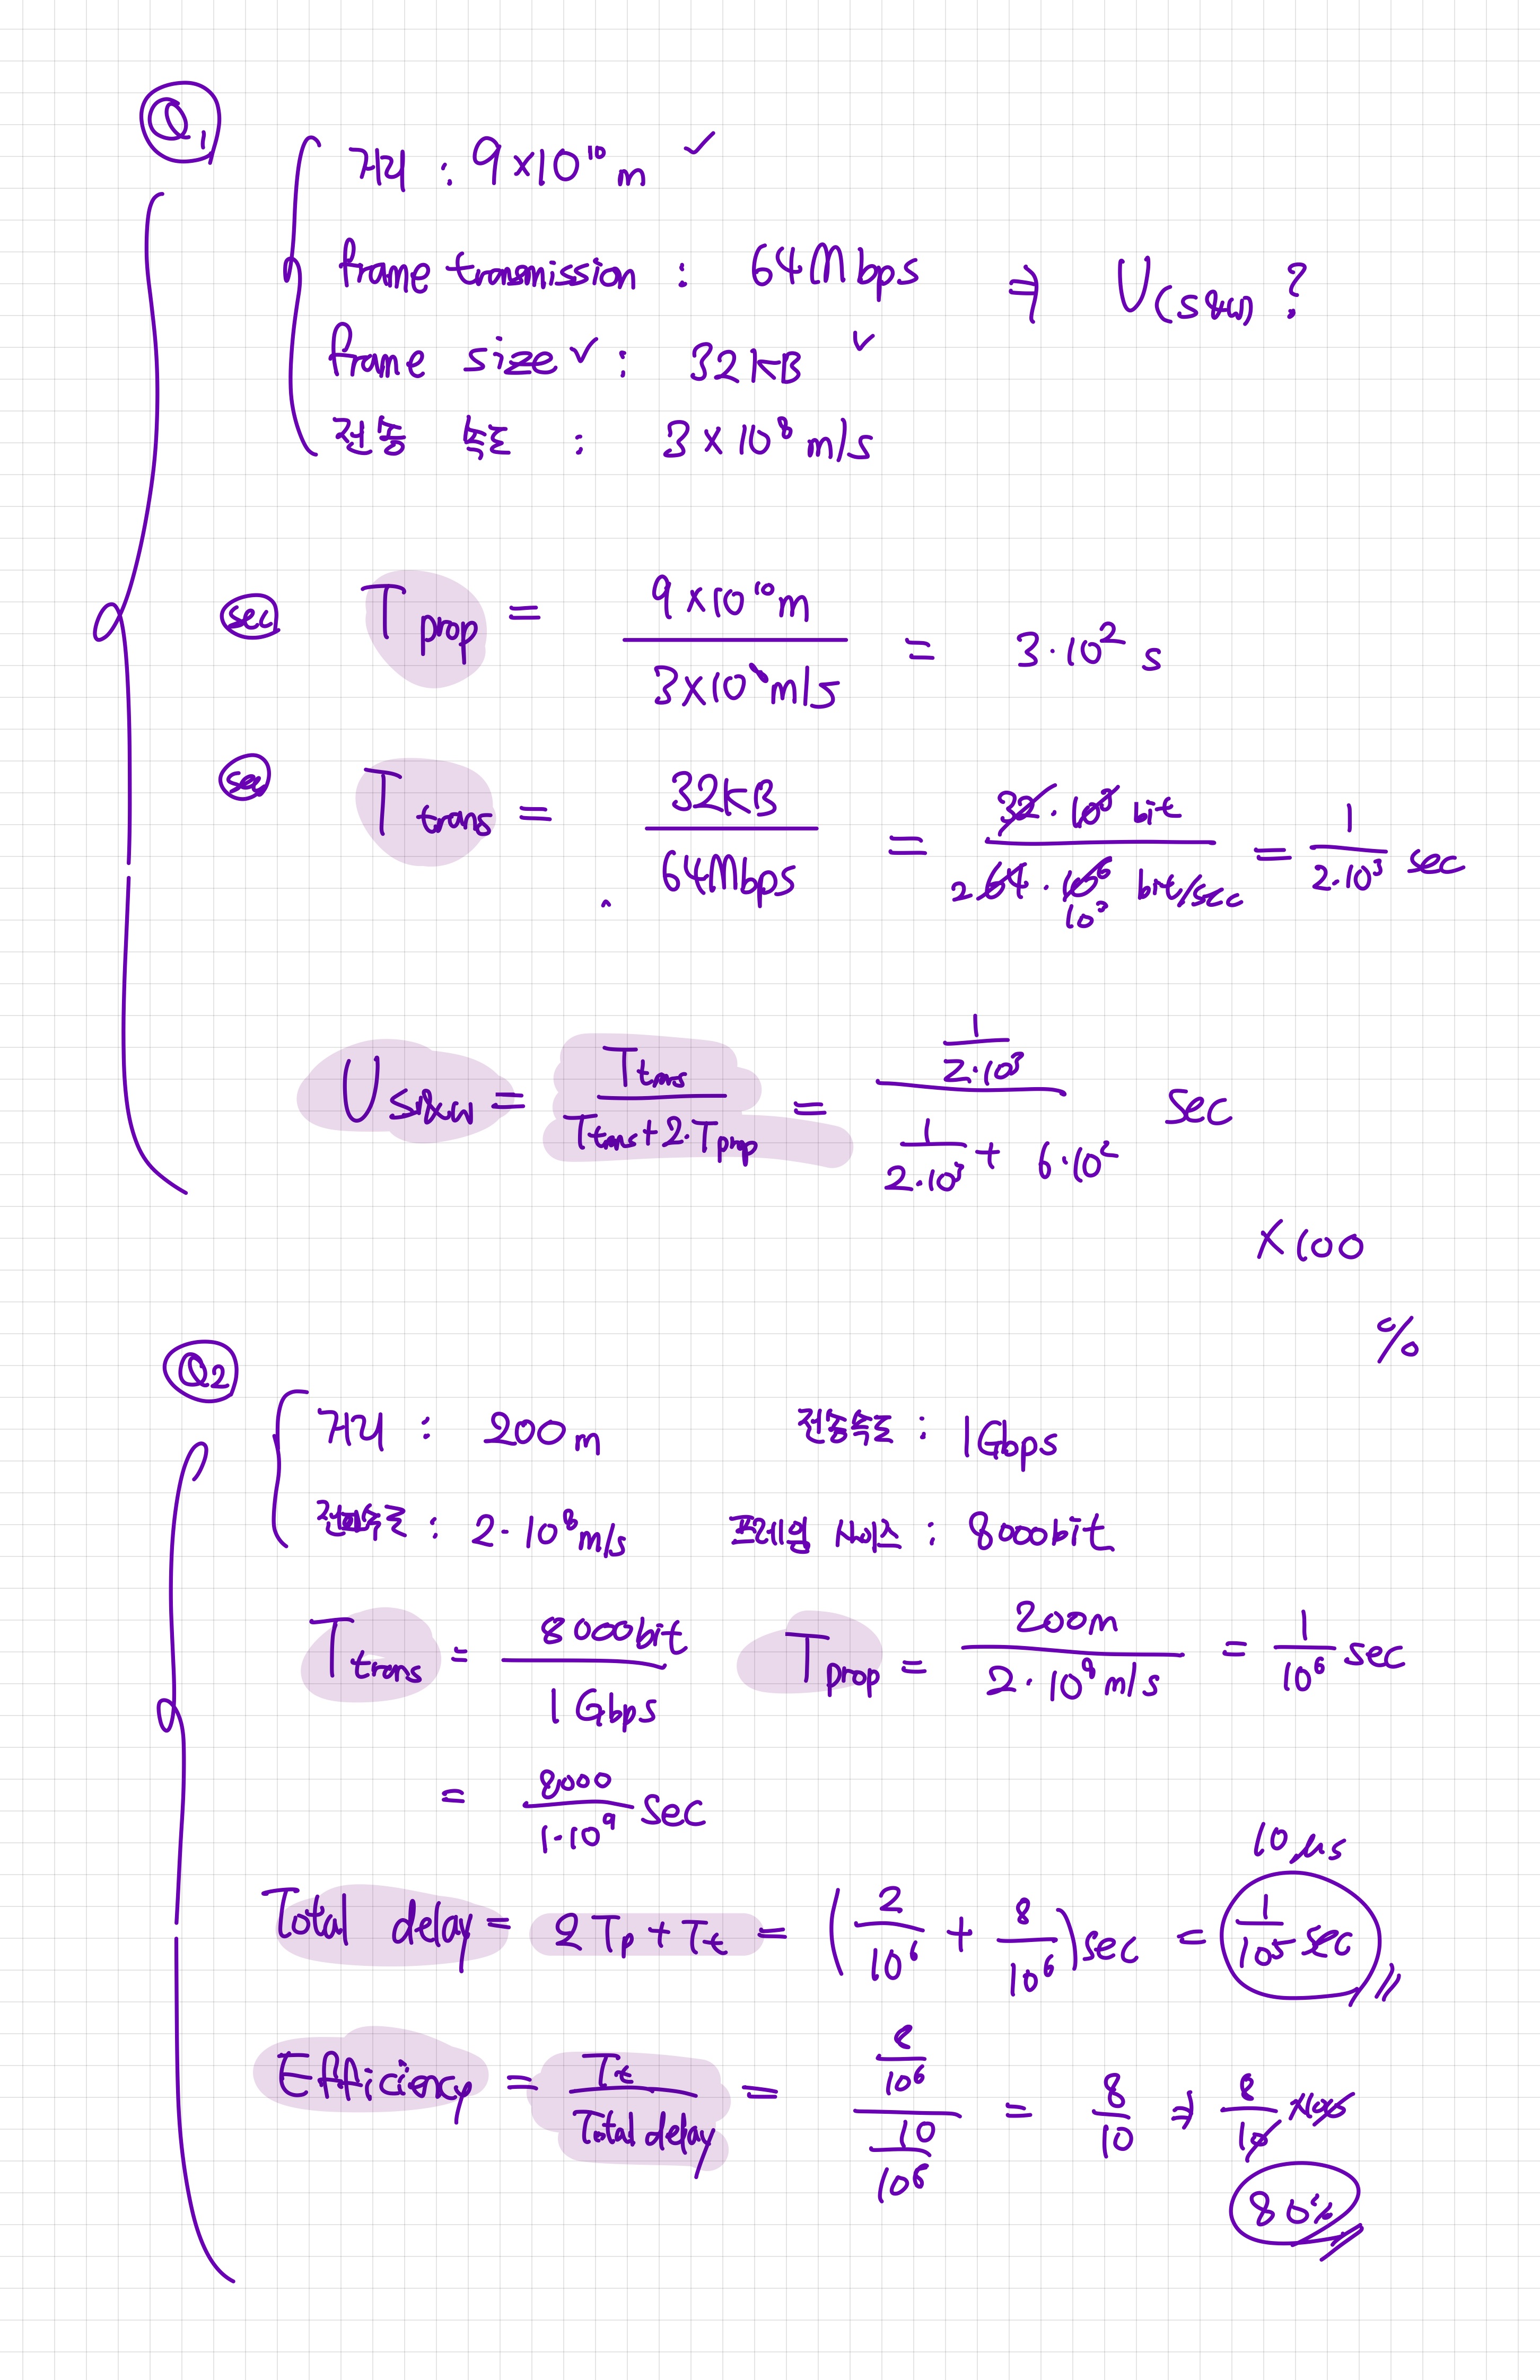 Q1
거리 : 9×10¹⁰ m ✓
frame transmission : 64Mbps ⇒ U(S&W) ?
frame size ✓ : 32KB ✓
전송 속도 : 3×10⁸ m/s
sec T prop = 9×10¹⁰m / 3×10⁸m/s = 3·10² s
sec T trans = 32KB / 64Mbps = 32·10³ bit / 2 64·10⁶ 10³ bit/sec = 1 / 2·10³ sec
U S&W = Ttrans / Ttrans+2·Tprop = 1/2·10³ / 1/2·10³ + 6·10² sec
×100
%
Q2
거리 : 200m 전송속도 : 1Gbps
전파속도 : 2·10⁸m/s 프레임 사이즈 : 8000bit
T trans = 8000bit / 1Gbps T prop = 200m / 2·10⁸m/s = 1/10⁶ sec
= 8000 / 1·10⁹ sec
10μs
Total delay = 2Tp + Tt = (2/10⁶ + 8/10⁶) sec = 1/10⁵ sec
Efficiency = Tt / Total delay = 8/10⁶ / 10/10⁶ = 8/10 ⇒ 8/10 ×100
80%